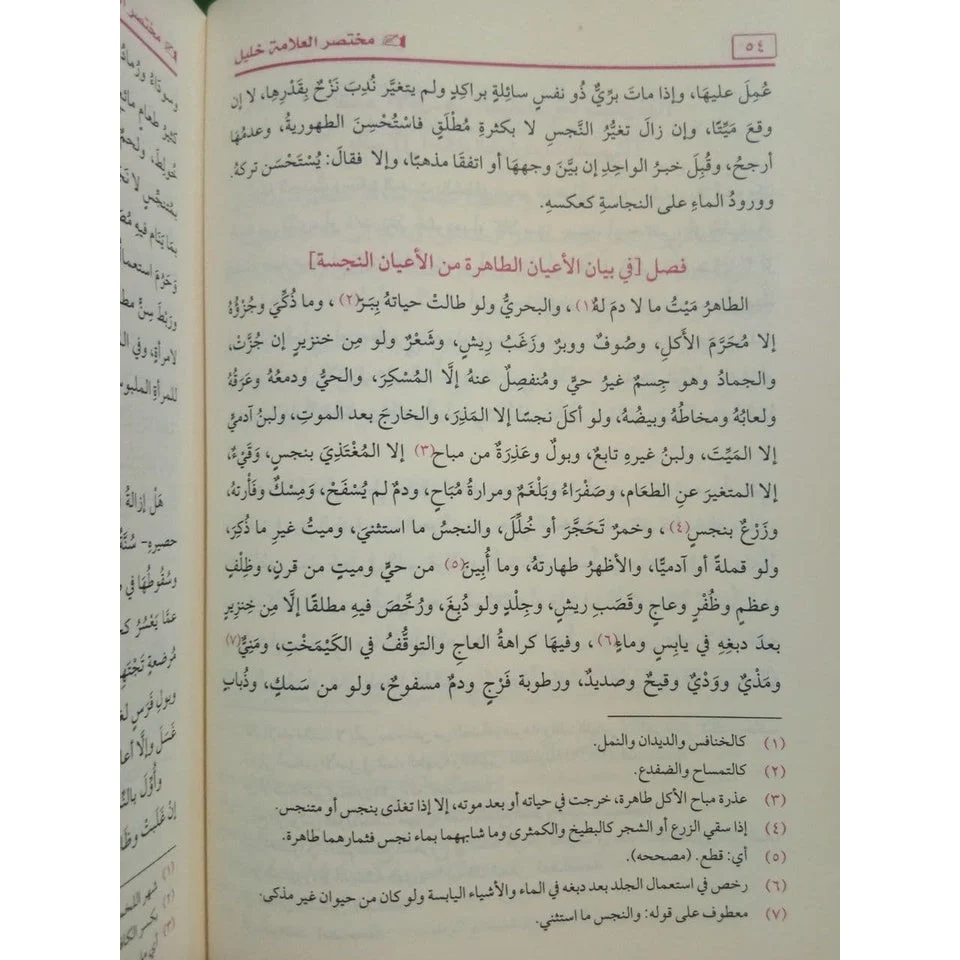 ٥٤
مختصر العلامة خليل
عُمِلَ عليهَا، وإذا ماتَ برِّيٌّ ذُو نفسٍ سائِلةٍ براكِدٍ ولم يتغيَّر نُدِبَ نَزْحٌ بِقَدْرِها، لا إن
وقعَ مَيِّتًا، وإن زالَ تغيُّرُ النَّجسِ لا بكثرةِ مُطْلَقٍ فاسْتُحْسِنَ الطهوريةُ، وعدمُهَا
أرجحُ، وقُبِلَ خبرُ الواحِدِ إن بيَّنَ وجهَهَا أو اتفقَا مذهبًا، وإلا فقالَ: يُسْتَحْسَن تركهُ.
وورودُ الماءِ على النجاسةِ كعكسهِ.
فصل [في بيان الأعيان الطاهرة من الأعيان النجسة]
الطاهرُ مَيْتُ ما لا دمَ لهُ(١)، والبحريُّ ولو طالتْ حياتهُ بِبَرّ(٢)، وما ذُكِّيَ وجُزْؤُهُ
إلا مُحَرَّمَ الأَكلِ، وصُوفٌ ووبرٌ وزَغَبُ رِيشٍ، وشَعْرٌ ولو مِن خنزيرٍ إن جُزَّتْ،
والجمادُ وهو جِسمٌ غيرُ حيٍّ ومُنفصِلٌ عنهُ إلَّا المُسْكِرَ، والحيُّ ودمعُهُ وعَرَقُهُ
ولعابُهُ ومخاطُهُ وبيضُهُ، ولو أكلَ نجسًا إلا المَذِرَ، والخارجَ بعد الموتِ، ولبنُ آدميٍّ
إلا المَيِّتَ، ولبنُ غيرِهِ تابعٌ، وبولٌ وعَذِرَةٌ من مباح(٣) إلا المُغْتَذِيَ بنجسٍ، وقَيْءٌ،
إلا المتغيرَ عنِ الطعَام، وصَفْرَاءُ وبَلْغَمٌ ومرارةُ مُبَاحٍ، ودمٌ لم يُسْفَحْ، ومِسْكٌ وفَأْرتهُ،
وزَرْعٌ بنجسٍ(٤)، وخمرٌ تَحَجَّرَ أو خُلِّلَ، والنجسُ ما استثنيَ، وميتُ غيرِ ما ذُكِرَ،
ولو قملةً أو آدميًا، والأظهرُ طهارتهُ، وما أُبِينَ(٥) من حيٍّ وميتٍ من قرنٍ، وظِلْفٍ
وعظمٍ وظُفْرٍ وعاجٍ وقَصَبِ ريشٍ، وجِلْدٍ ولو دُبِغَ، ورُخِّصَ فيهِ مطلقًا إلَّا مِن خِنزِيرٍ
بعدَ دبغِهِ في يابِسٍ وماءٍ(٦)، وفيهَا كراهةُ العاجِ والتوقُّفُ في الكَيْمَخْتِ، ومَنِيٌّ(٧)
ومَذْيٌ ووَدْيٌ وقيحٌ وصديدٌ، ورطوبة فَرْجٍ ودمٌ مسفوحٌ، ولو من سَمكٍ، وذُبابٍ
(١) كالخنافس والديدان والنمل.
(٢) كالتمساح والضفدع.
(٣) عذرة مباح الأكل طاهرة، خرجت في حياته أو بعد موته، إلا إذا تغذى بنجس أو متنجس.
(٤) إذا سقي الزرع أو الشجر كالبطيخ والكمثرى وما شابههما بماء نجس فثمارهما طاهرة.
(٥) أي: قطع. (مصححه).
(٦) رخص في استعمال الجلد بعد دبغه في الماء والأشياء اليابسة ولو كان من حيوان غير مذكى.
(٧) معطوف على قوله: والنجس ما استثني.